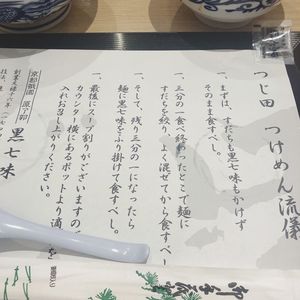 つじ田 つけめん流儀
一、まずは、すだちも黒七味もかけず
そのまま食すべし。
一、三分の一食べ終わったとこで麺に
すだちを絞り、よく混ぜてから食すべし
一、そして、残り三分の一になったら
麺に黒七味をふり掛けて食すべし。
一、最後にスープ割りがございますの
カウンター横にあるポットより適
入れお召し上がりください。
京都祇園 原了郭
黒七味